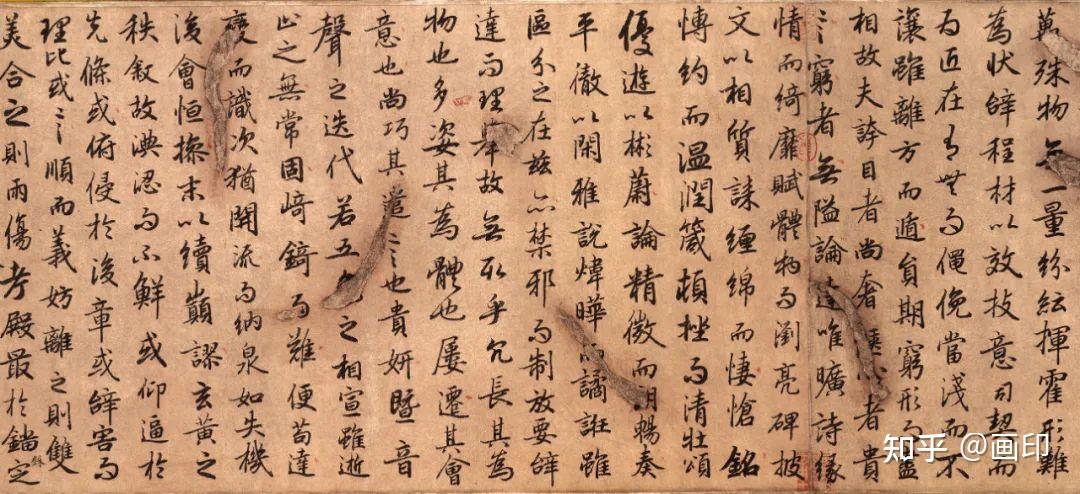 萬殊物無一量紛紜揮霍形難
為狀辞程材以效技意司契而
為匠在有無而僶俛當淺而不
讓雖離方而遁員期窮形而盡
相故夫誇目者尚奢愜心者貴
〻窮者無隘論達唯曠詩緣
情而綺靡賦體物而瀏亮碑披
文以相質誄纏綿而悽愴銘
博約而温潤箴頓挫而清壯頌
優遊以彬蔚論精微而朗暢奏
平徹以閑雅說煒曄而譎誑雖
區分之在茲亦禁邪而制放要辞
達而理舉故無取乎冗長其為
物也多姿其為體也屢遷其會
意也尚巧其遣〻也貴妍暨音
聲之迭代若五色之相宣雖逝
止之無常固崎錡而難便苟達
變而識次猶開流而納泉如失機
後會恒操末以續巔謬玄黃之
秩叙故淟涊而不鮮或仰逼於
先條或俯侵於後章或辞害而
理比或〻順而義妨離之則雙
美合之則兩傷考殿最於錙銖定
知乎 @画印